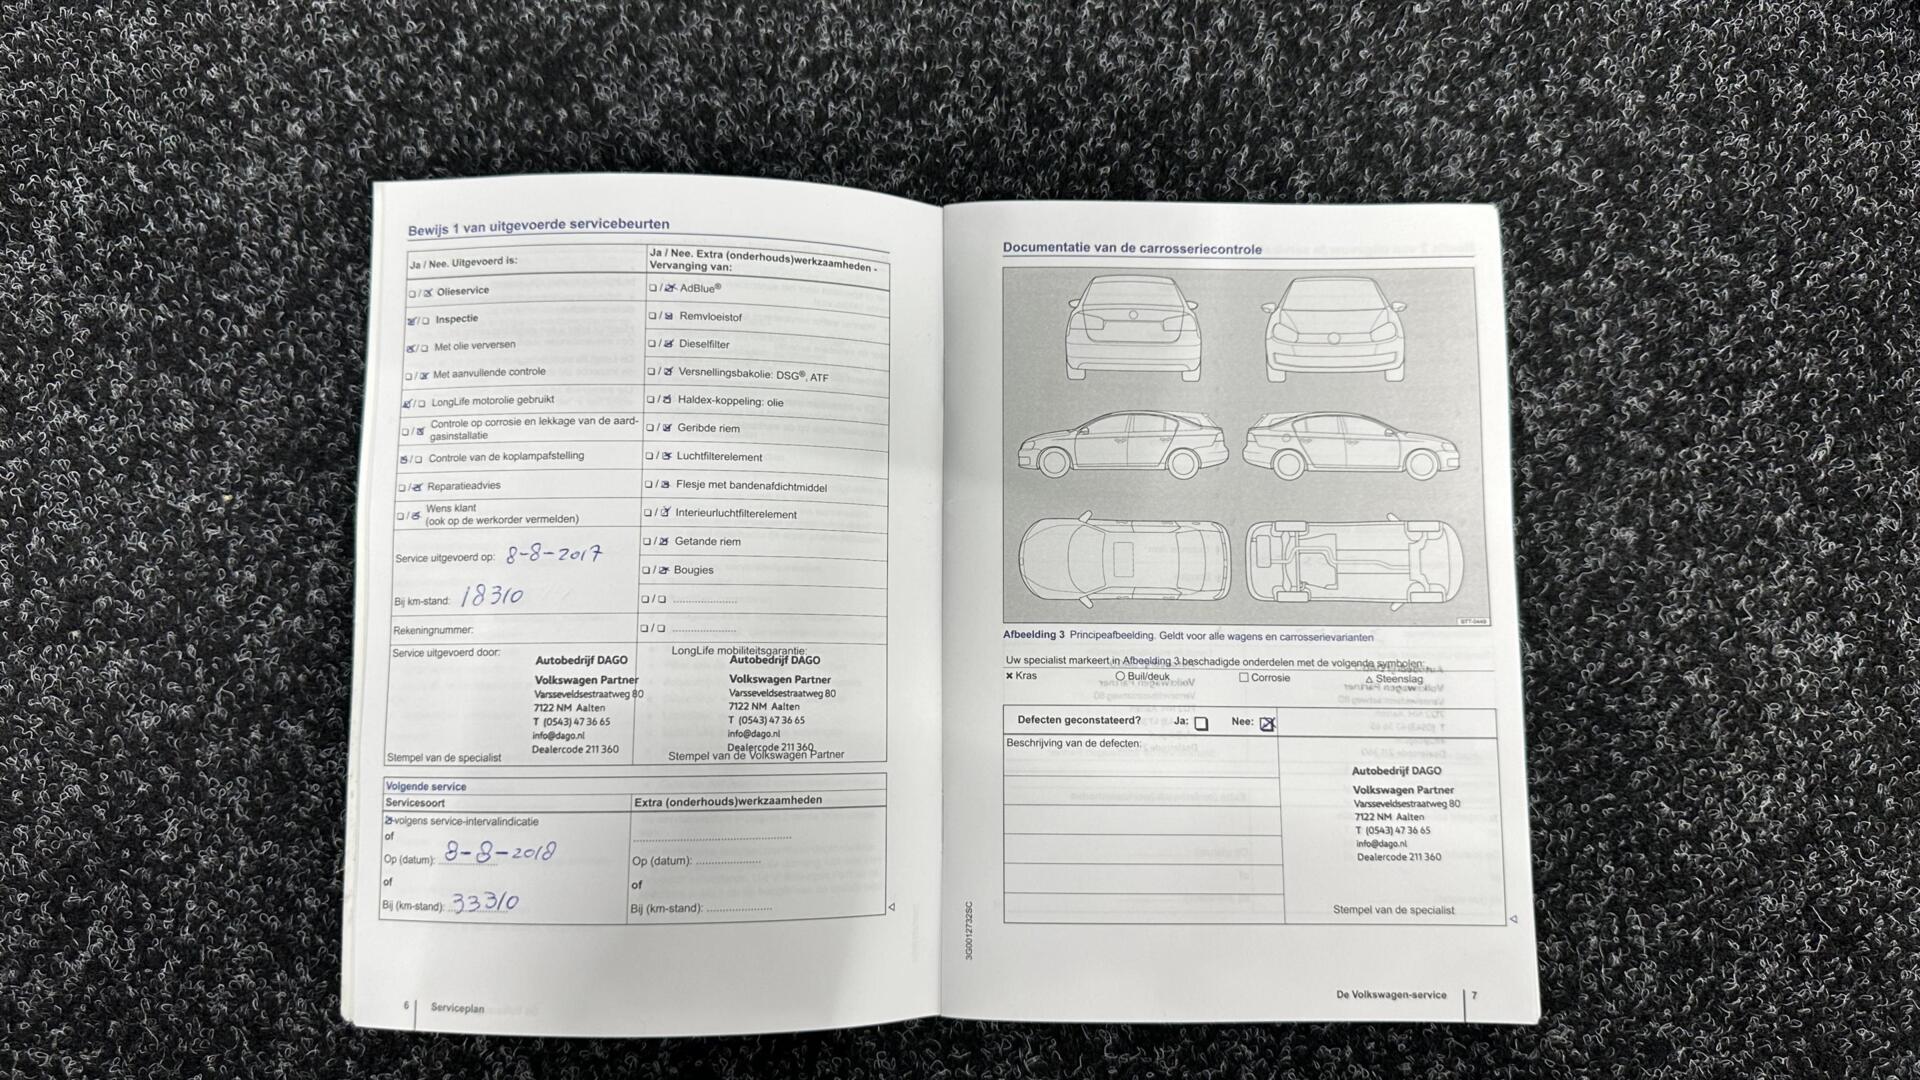 Bewijs 1 van uitgevoerde servicebeurten
Ja / Nee. Uitgevoerd is:
Olieservice
Inspectie
Met olie verversen
Met aanvullende controle
LongLife motorolie gebruikt
Controle op corrosie en lekkage van de aard-
gasinstallatie
Controle van de koplampafstelling
Reparatieadvies
Wens klant
(ook op de werkorder vermelden)
Service uitgevoerd op: 8-8-2017
Bij km-stand: 18310
Rekeningnummer:
Service uitgevoerd door:
Autobedrijf DAGO
Volkswagen Partner
Varsseveldsestraatweg 80
7122 NM Aalten
T (0543) 47 36 65
info@dago.nl
Dealercode 211 360
Stempel van de specialist
Ja / Nee. Extra (onderhouds)werkzaamheden -
Vervanging van:
AdBlue®
Remvloeistof
Dieselfilter
Versnellingsbakolie: DSG®, ATF
Haldex-koppeling: olie
Geribde riem
Luchtfilterelement
Flesje met bandenafdichtmiddel
Interieurluchtfilterelement
Getande riem
Bougies
LongLife mobiliteitsgarantie:
Autobedrijf DAGO
Volkswagen Partner
Varsseveldsestraatweg 80
7122 NM Aalten
T (0543) 47 36 65
info@dago.nl
Dealercode 211 360
Stempel van de Volkswagen Partner
Volgende service
Servicesoort
volgens service-intervalindicatie
of
Op (datum): 8-8-2018
of
Bij (km-stand): 33310
Extra (onderhouds)werkzaamheden
Op (datum):
of
Bij (km-stand):
6 Serviceplan
Documentatie van de carrosseriecontrole
BTT-0449
Afbeelding 3 Principeafbeelding. Geldt voor alle wagens en carrosserievarianten
Uw specialist markeert in Afbeelding 3 beschadigde onderdelen met de volgende symbolen:
Kras Buil/deuk Corrosie Steenslag
Defecten geconstateerd? Ja: Nee:
Beschrijving van de defecten:
Autobedrijf DAGO
Volkswagen Partner
Varsseveldsestraatweg 80
7122 NM Aalten
T (0543) 47 36 65
info@dago.nl
Dealercode 211 360
Stempel van de specialist
3G0012732SC
De Volkswagen-service 7